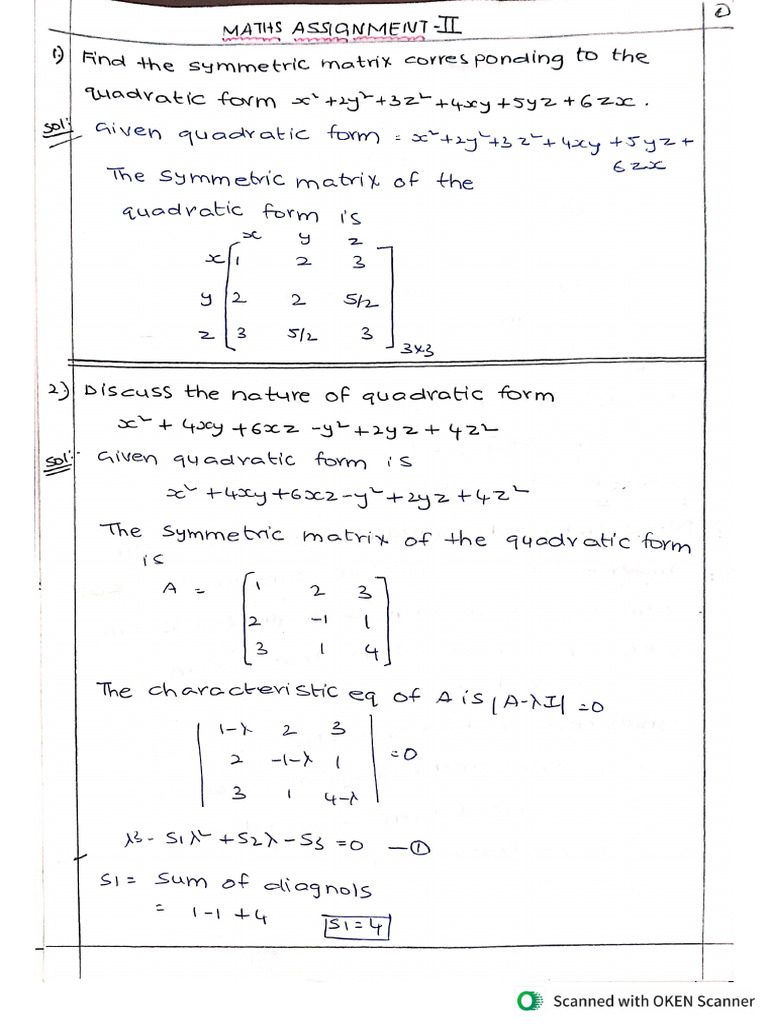 ①
MATHS ASSIGNMENT-II
1) Find the symmetric matrix corresponding to the
quadratic form x² + 2y² + 3z² + 4xy + 5yz + 6zx.
Sol: Given quadratic form = x² + 2y² + 3z² + 4xy + 5yz +
6zx
The symmetric matrix of the
quadratic form is
x y z
x [ 1 2 3 ]
y [ 2 2 5/2 ]
z [ 3 5/2 3 ] 3x3
2) Discuss the nature of quadratic form
x² + 4xy + 6xz - y² + 2yz + 4z²
Sol: Given quadratic form is
x² + 4xy + 6xz - y² + 2yz + 4z²
The symmetric matrix of the quadratic form
is
A = [ 1 2 3 ]
[ 2 -1 1 ]
[ 3 1 4 ]
The characteristic eq of A is |A-λI| = 0
| 1-λ 2 3 |
| 2 -1-λ 1 | = 0
| 3 1 4-λ |
λ³ - S1λ² + S2λ - S3 = 0 — ①
S1 = sum of diagnols
= 1-1+4 S1 = 4
Scanned with OKEN Scanner